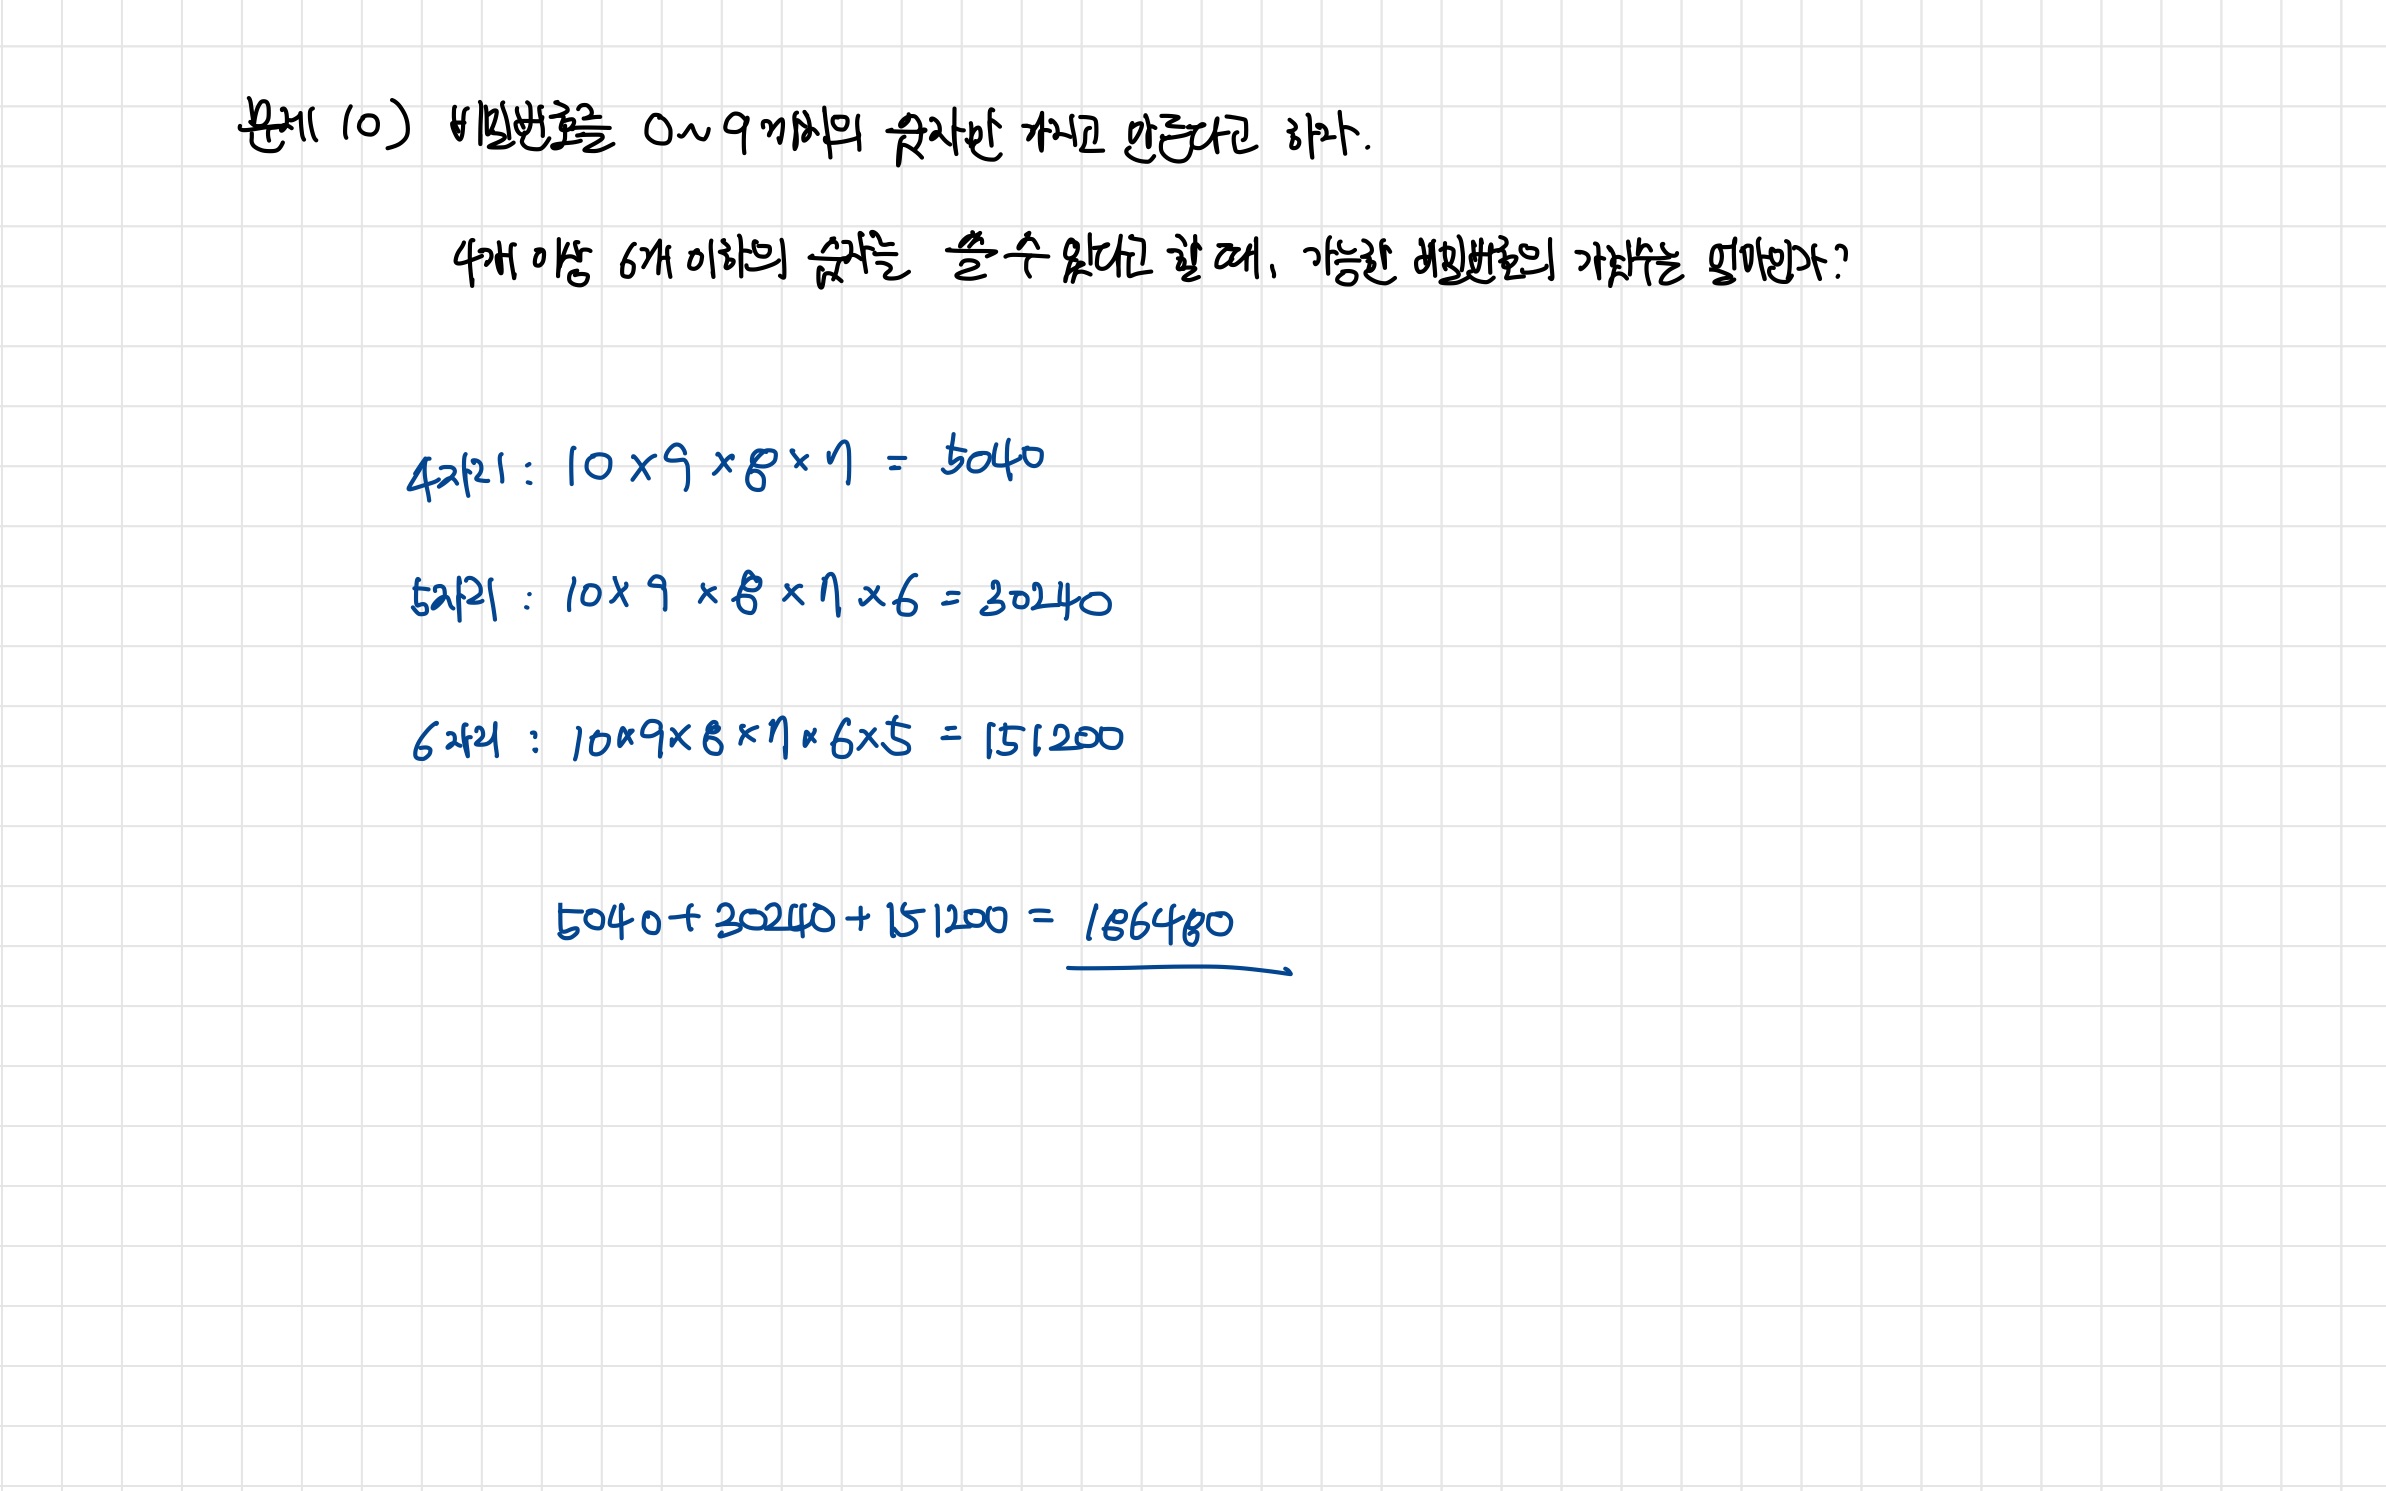 문제 10) 비밀번호를 0~9까지의 숫자만 가지고 만든다고 하자.
4개 이상 6개 이하의 숫자를 쓸 수 있다고 할 때, 가능한 비밀번호의 개수는 얼마인가?
4자리 : 10 x 9 x 8 x 7 = 5040
5자리 : 10 x 9 x 8 x 7 x 6 = 30240
6자리 : 10 x 9 x 8 x 7 x 6 x 5 = 151200
5040 + 30240 + 151200 = 186480